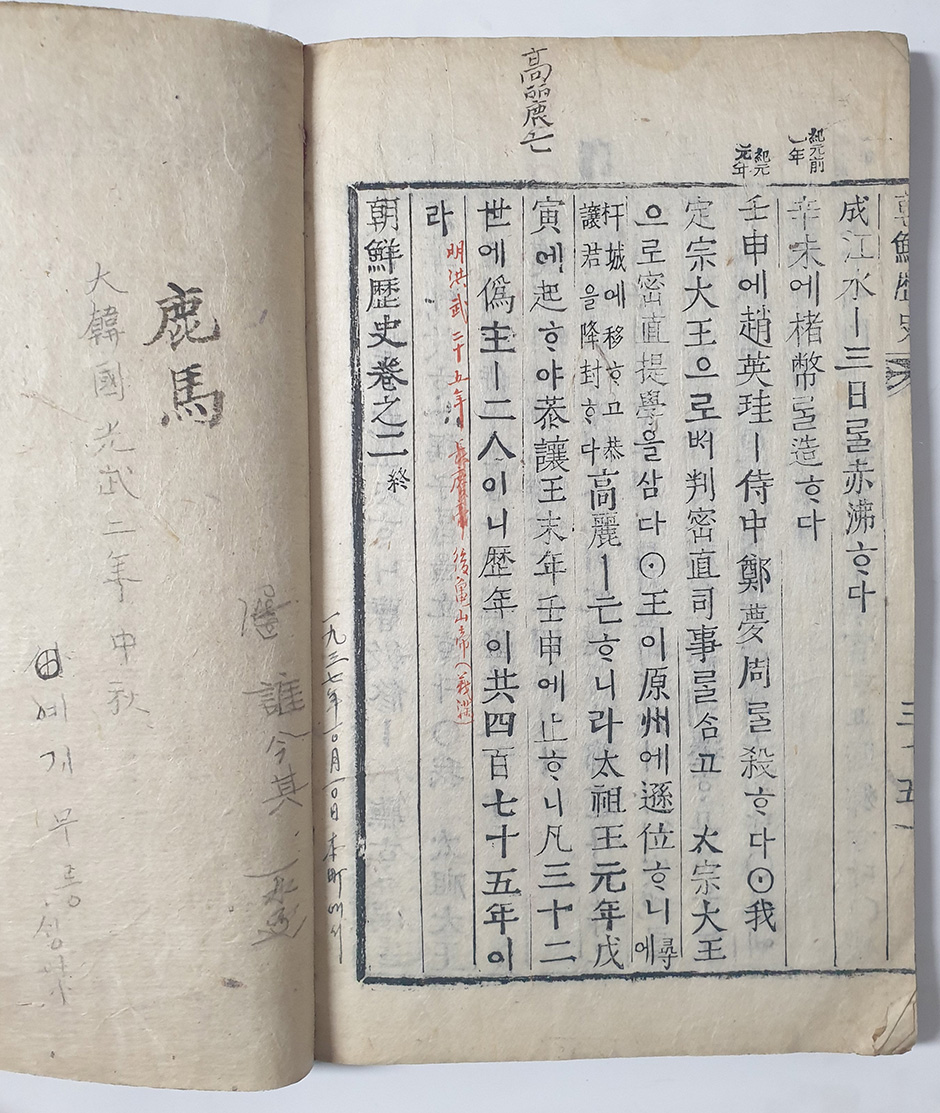 高麗亡
紀元前
一年
紀元
元年
朝鮮歷史
三十五
成江水ㅣ三日을赤沸ᄒᆞ다
辛未에楮幣ᄅᆞᆯ造ᄒᆞ다
壬申에趙英珪ㅣ侍中鄭夢周ᄅᆞᆯ殺ᄒᆞ다⊙我
定宗大王으로버判密直司事ᄅᆞᆯ合고太宗大王
으로密直提學을삼다⊙王이原州에遜位ᄒᆞ니尋에
杆城에移ᄒᆞ고恭
讓君을降封ᄒᆞ다
高麗ㅣ亡ᄒᆞ니라太祖王元年戊
寅에起ᄒᆞ야恭讓王末年壬申에止ᄒᆞ니凡三十二
世에僞主ㅣ二人이니歷年이共四百七十五年이
라
明洪武二十五年
後亀山寺
朝鮮歷史卷之二
終
一九三七年一〇月一〇日本町
鹿馬
大韓國光武二年中秋
誰今其